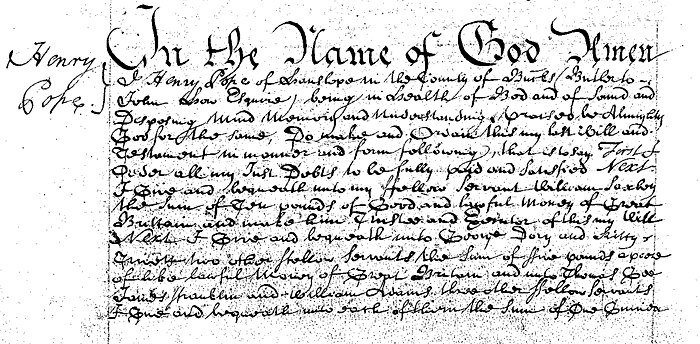 Henry
Pope
In the Name of God Amen
I Henry Pope of Hanslope in the County of Bucks Butler to
John Esquire being in Health of Bod and of Sound and
Disposing Mind Memory and Understanding Praised be Almighty
God for the same, Do make and Ordain this my last Will and
Testament in manner and form following, that is to say First I
Order all my Just Debts to be fully paid and satisfied Next
I Give and bequeath unto my Fellow Servant William
the Sum of Ten pounds of Good and lawful Money of Great
Brittain and make him Trustee and Executor of this my Will
Next I Give and bequeath unto George and Kitty
two other Fellow Servants the Sum of Five pounds apeece
of like lawful Money of Great Britain and unto Thomas
James Franklin and William Adams three other Fellow Servants
I Give and bequeath unto each of them the Sum of One Guinea